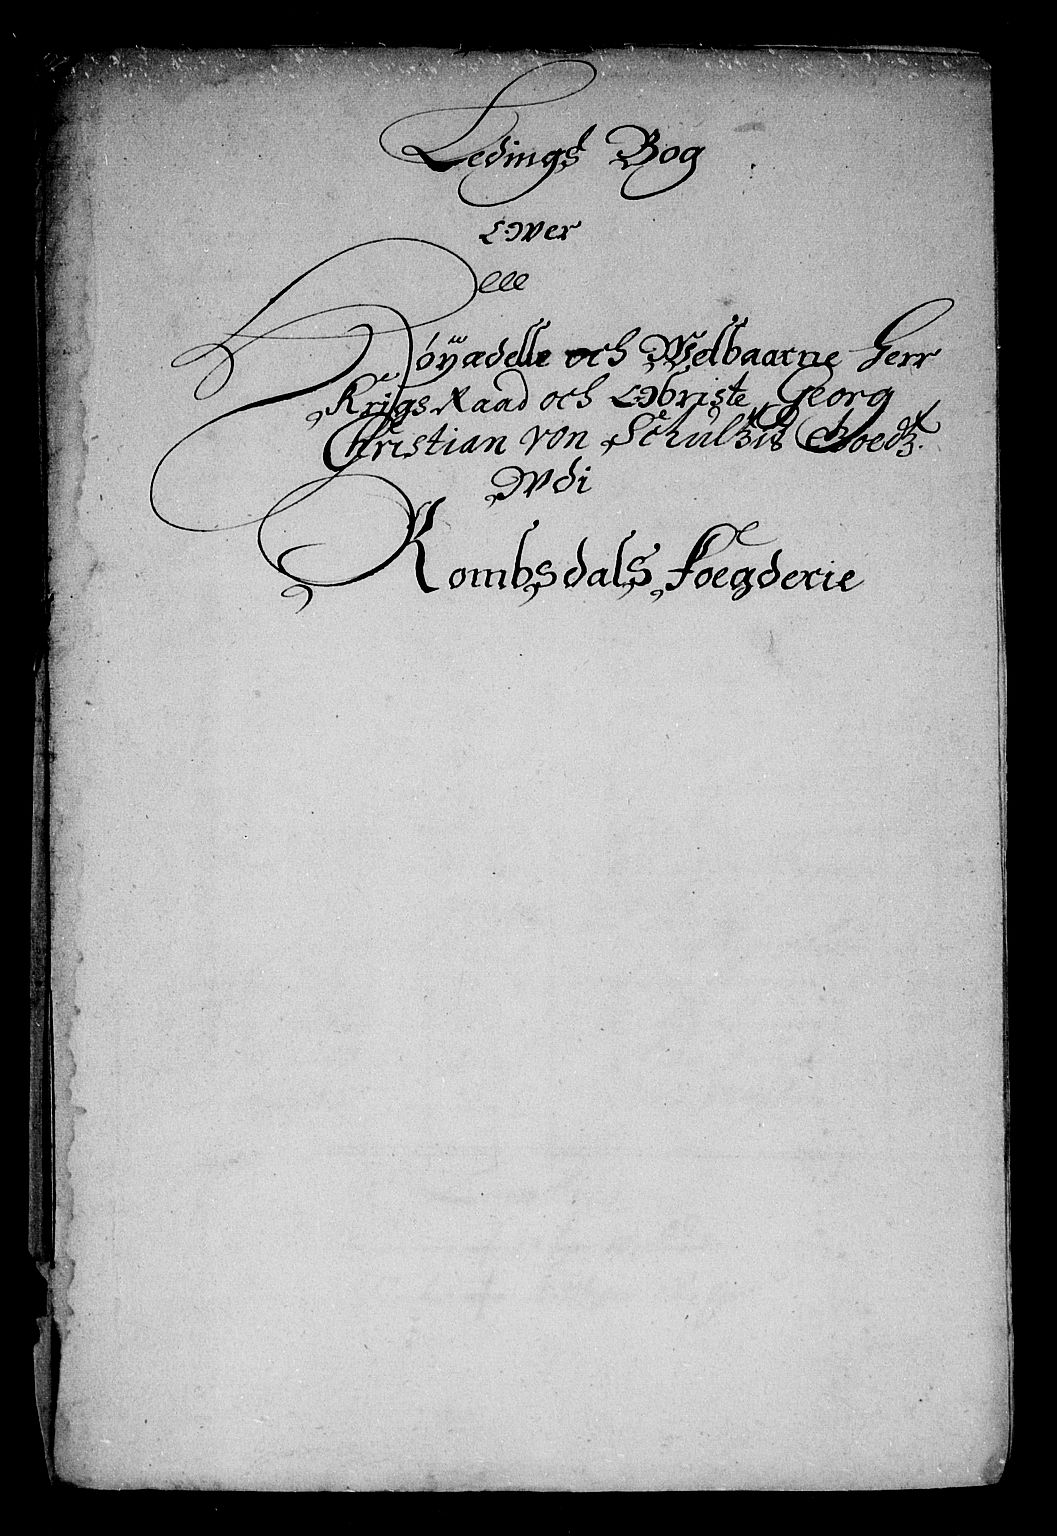 Ledings Bog
Ofver
Höÿædelle och Welbaarne Herr
Krigs Raad och Obriste Georg
Christian von Schultzis Goedtz
Udi
Rombsdals Foegderie